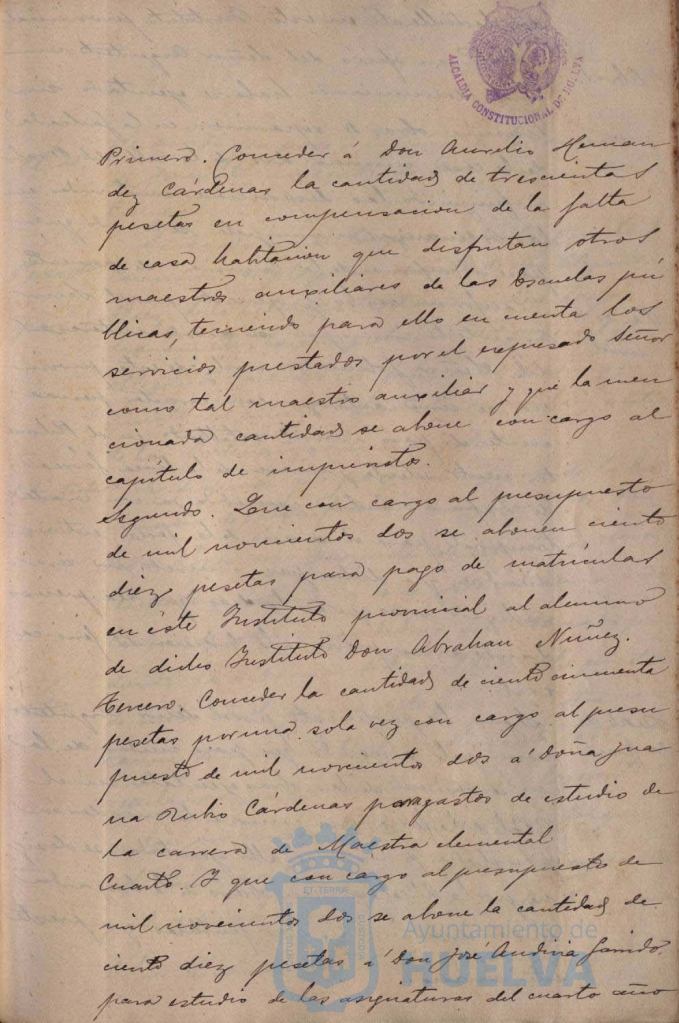 ALCALDIA CONSTITUCIONAL DE HUELVA
Primero. Conceder á Don Aurelio Hernan
dez Cárdenas la cantidad de trescientas
pesetas en compensacion de la falta
de casa habitacion que disfrutan otros
maestros auxiliares de las Escuelas pú
blicas, teniendo para ello en cuenta los
servicios prestados por el expresado Señor
como tal maestro auxiliar y que la men
cionada cantidad se abone con cargo al
capítulo de imprevistos.
Segundo. Que con cargo al presupuesto
de mil novecientos dos se abonen ciento
diez pesetas para pago de matrículas
en éste Instituto provincial al alumno
de dicho Instituto Don Abrahan Núñez.
Tercero. Conceder la cantidad de ciento cincuenta
pesetas por una sola vez con cargo al presu
puesto de mil novecientos dos á Doña Jua
na Rubio Cárdenas para gastos de estudio de
la carrera de Maestra elemental
Cuarto. Y que con cargo al presupuesto de
mil novecientos dos se abone la cantidad de
ciento diez pesetas á Don José Garrido,
para estudio de las asignaturas del cuarto año
Ayuntamiento de
HUELVA